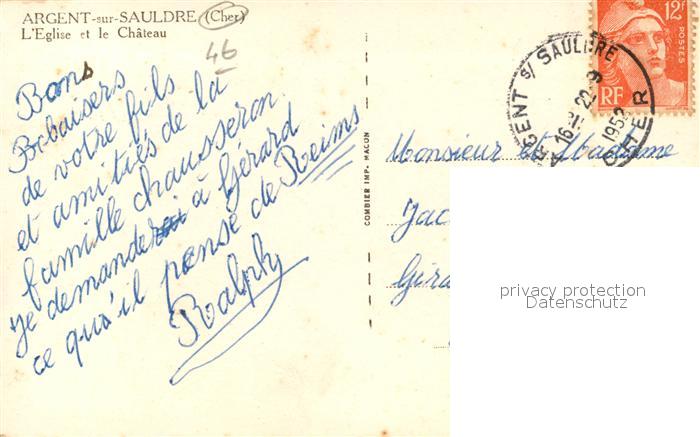 ARGENT-sur-SAULDRE (Cher)
L'Eglise et le Château
46
Bons
Bbaisers
de votre fils
et amitiés de la
famille chausseron.
Je demanderai à Gérard
ce qu'il pense de Reims
Ralph
COMBIER IMP. MACON
12F
POSTES
RF
ARGENT s/ SAULDRE
16 H 22-9
1952
CHER
Monsieur et Madame
Jac
Gira
privacy protection
Datenschutz